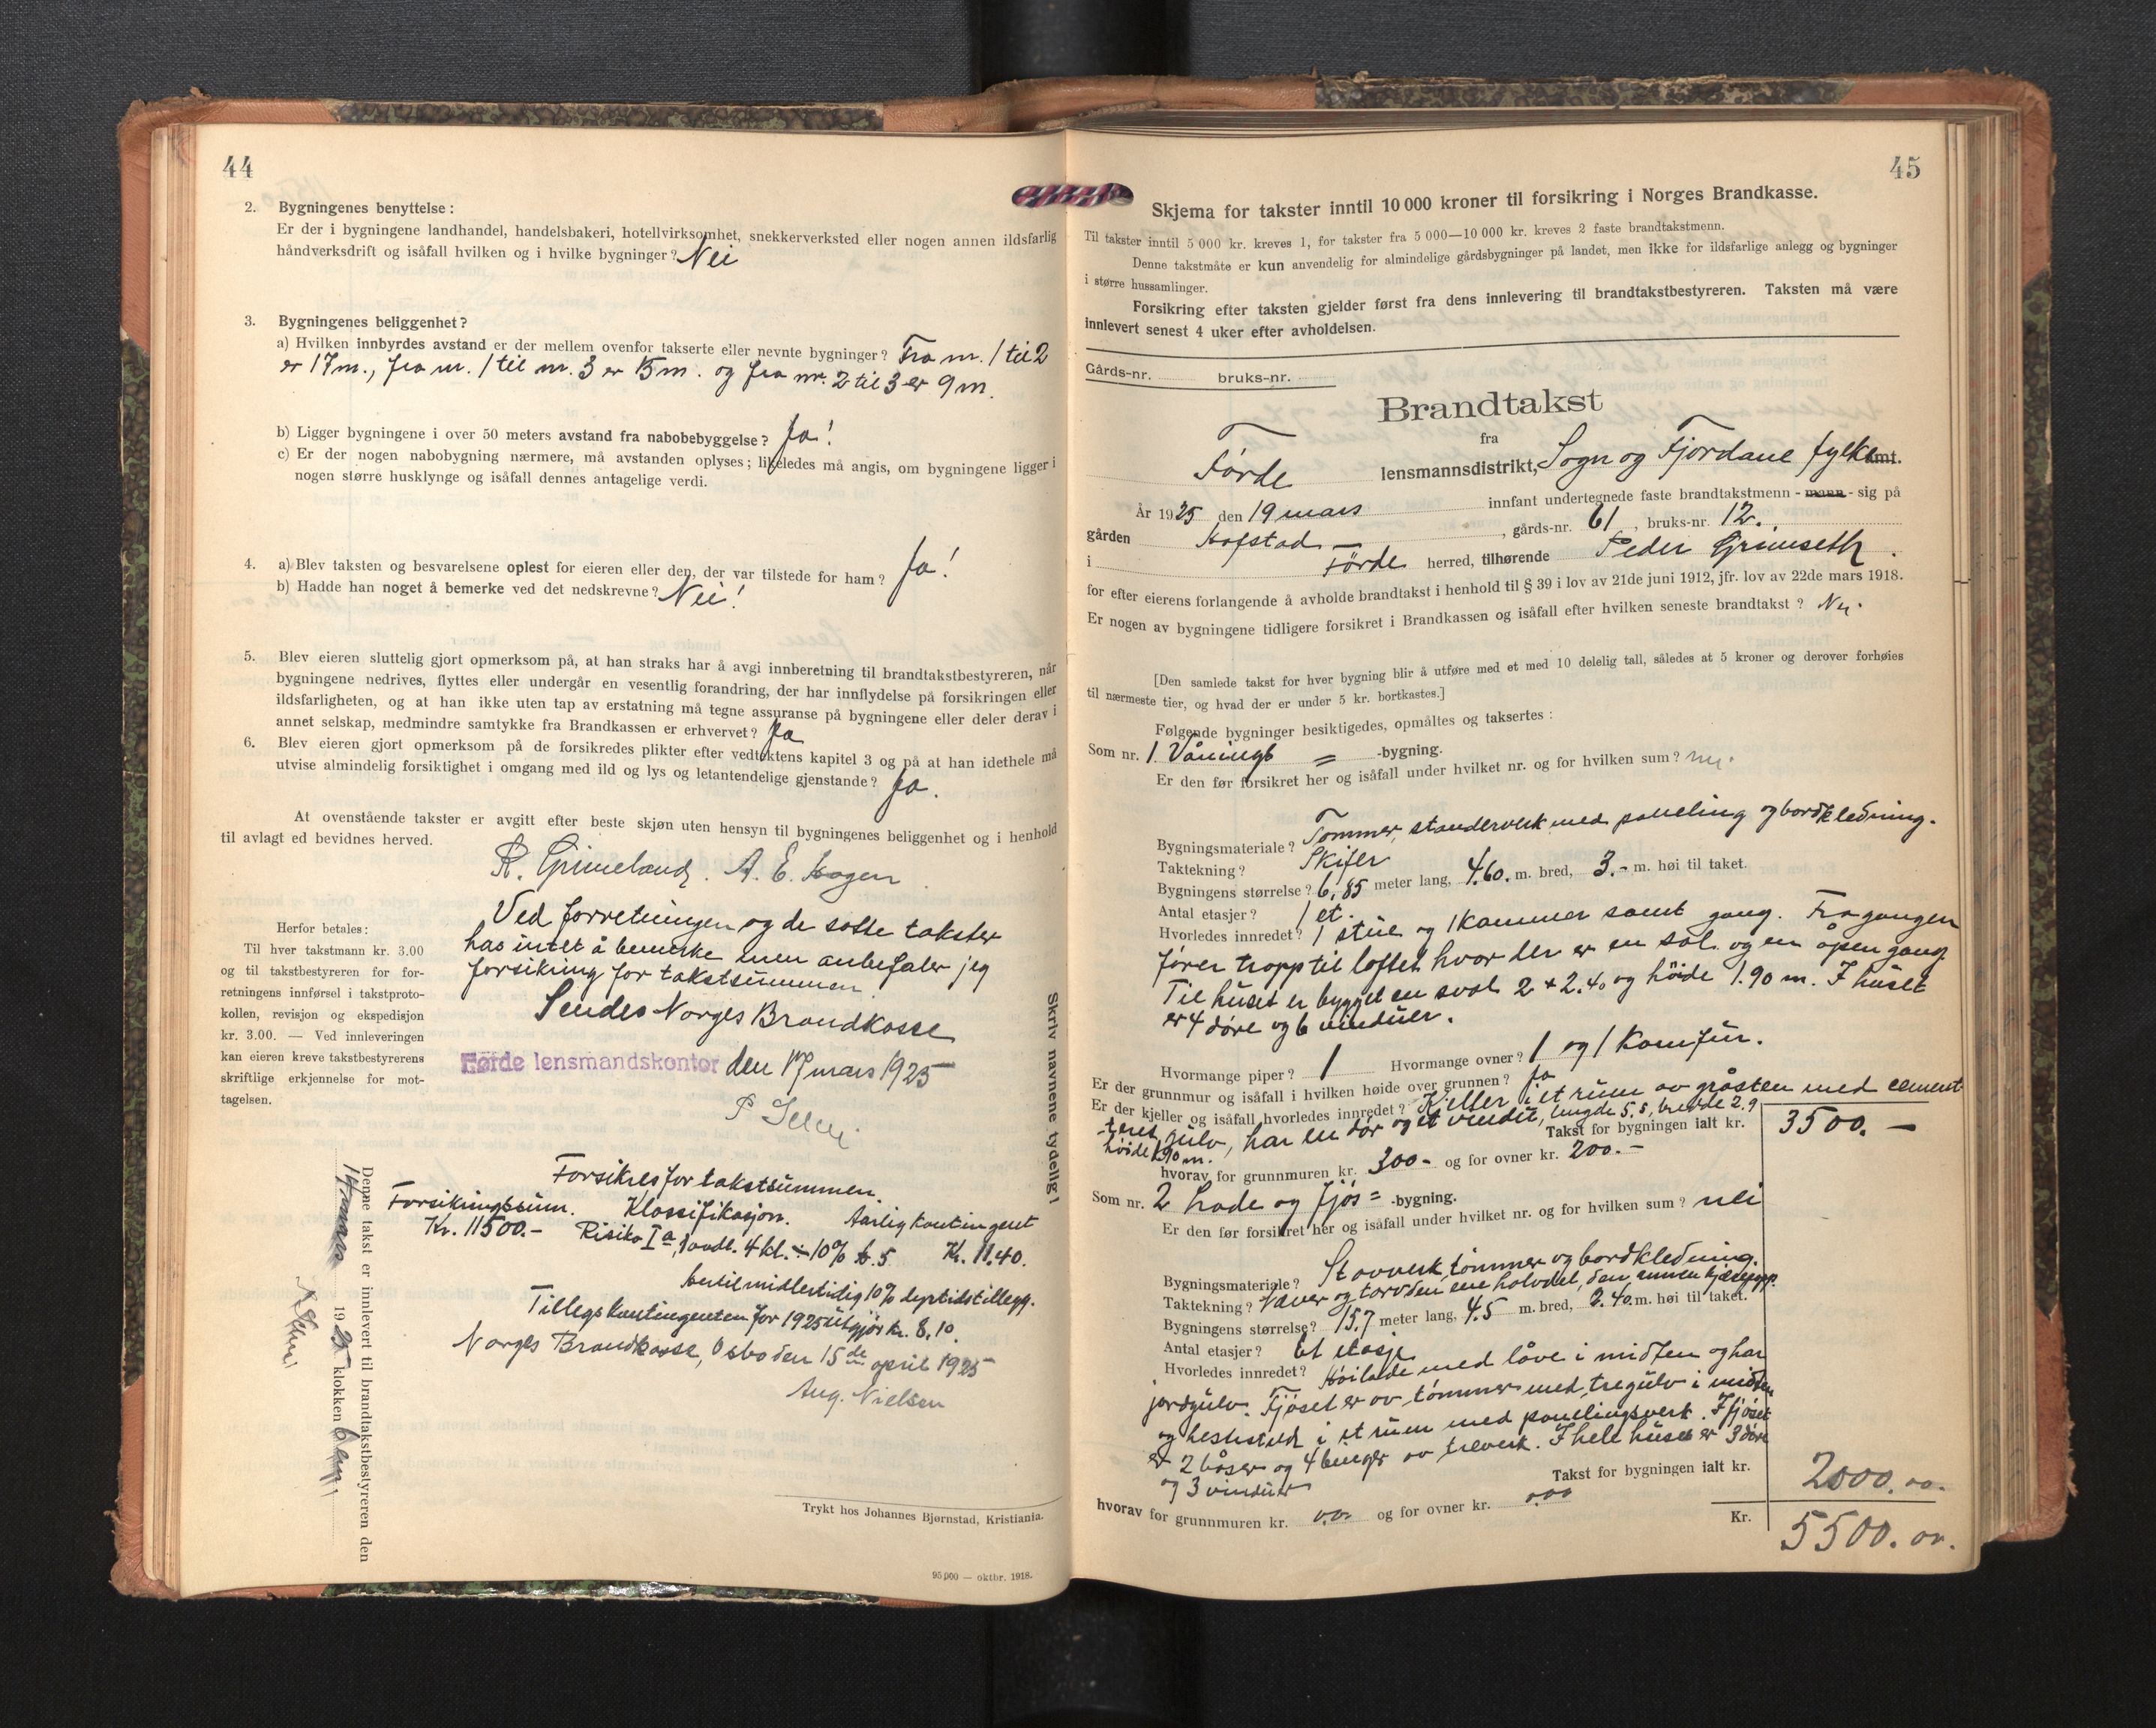 44
2. Bygningenes benyttelse:
Er der i bygningene landhandel, handelsbakeri, hotellvirksomhet, snekkerverksted eller nogen annen ildsfarlig
håndverksdrift og isåfall hvilken og i hvilke bygninger? Nei
3. Bygningenes beliggenhet?
a) Hvilken innbyrdes avstand er der mellem ovenfor takserte eller nevnte bygninger? Fra nr. 1 til 2
er 17 m., fra nr. 1 til nr. 3 er 15 m. og fra nr. 2 til 3 er 9 m.
b) Ligger bygningene i over 50 meters avstand fra nabobebyggelse? Ja!
c) Er der nogen nabobygning nærmere, må avstanden oplyses; likeledes må angis, om bygningene ligger i
nogen større husklynge og isåfall dennes antagelige verdi.
4. a) Blev taksten og besvarelsene oplest for eieren eller den, der var tilstede for ham? Ja!
b) Hadde han noget å bemerke ved det nedskrevne? Nei!
5. Blev eieren sluttelig gjort opmerksom på, at han straks har å avgi innberetning til brandtakstbestyreren, når
bygningene nedrives, flyttes eller undergår en vesentlig forandring, der har innflydelse på forsikringen eller
ildsfarligheten, og at han ikke uten tap av erstatning må tegne assuranse på bygningene eller deler derav i
annet selskap, medmindre samtykke fra Brandkassen er erhvervet? Ja
6. Blev eieren gjort opmerksom på de forsikredes plikter efter vedtektens kapitel 3 og på at han idethele må
utvise almindelig forsiktighet i omgang med ild og lys og letantendelige gjenstande? Ja.
At ovenstående takster er avgitt efter beste skjøn uten hensyn til bygningenes beliggenhet og i henhold
til avlagt ed bevidnes herved.
R. Grimeland. A. E. Hagen
Ved forretningen og de satte takster
has intet å bemerke men anbefaler jeg
forsikring for takstsummen.
Sendes Norges Brandkasse
Førde lensmandskontor den 17 mars 1925
Herfor betales:
Til hver takstmann kr. 3.00
og til takstbestyreren for for-
retningens innførsel i takstproto-
kollen, revisjon og ekspedisjon
kr. 3.00. — Ved innleveringen
kan eieren kreve takstbestyrerens
skriftlige erkjennelse for mot-
tagelsen.
Skriv navnene tydelig!
Forsikres for takstsummen.
Forsikringssum. Klassifikasjon. Aarlig kontingent
Kr. 11500.- Risiko Ia, 1 avdl. 4 kl. ÷ 10% b. 5 Kr. 11.40.
hertil midlertidig 10% dyrtidstillegg.
Tillegskontingenten for 1925 utgjør kr. 8,10.
Norges Brandkasse, Oslo den 15de april 1925
Aug. Nielsen
Denne takst er innlevert til brandtakstbestyreren den
17 mars 1925 klokken 6 em.
Trykt hos Johannes Bjørnstad, Kristiania.
95 000 — oktbr. 1918.
45
Skjema for takster inntil 10 000 kroner til forsikring i Norges Brandkasse.
Til takster inntil 5 000 kr. kreves 1, for takster fra 5 000—10 000 kr. kreves 2 faste brandtakstmenn.
Denne takstmåte er kun anvendelig for almindelige gårdsbygninger på landet, men ikke for ildsfarlige anlegg og bygninger
i større hussamlinger.
Forsikring efter taksten gjelder først fra dens innlevering til brandtakstbestyreren. Taksten må være
innlevert senest 4 uker efter avholdelsen.
Gårds-nr. bruks-nr.
Brandtakst
fra
Førde lensmannsdistrikt, Sogn og Fjordane fylke amt.
År 1925 den 19 mars innfant undertegnede faste brandtakstmenn - mann - sig på
gården Hafstad , gårds-nr. 61 , bruks-nr. 12.
i Förde herred, tilhørende Peder Grimseth.
for efter eierens forlangende å avholde brandtakst i henhold til § 39 i lov av 21de juni 1912, jfr. lov av 22de mars 1918.
Er nogen av bygningene tidligere forsikret i Brandkassen og isåfall efter hvilken seneste brandtakst? Nei.
[Den samlede takst for hver bygning blir å utføre med et med 10 delelig tall, således at 5 kroner og derover forhøies
til nærmeste tier, og hvad der er under 5 kr. bortkastes.]
Følgende bygninger besiktigedes, opmåltes og taksertes:
Som nr. 1. Vånings = -bygning.
Er den før forsikret her og isåfall under hvilket nr. og for hvilken sum? nei.
Bygningsmateriale? Tømmer, standerverk med paneling og bordkledning.
Taktekning? Skifer
Bygningens størrelse? 6,85 meter lang, 4.60. m. bred, 3.- m. høi til taket.
Antal etasjer? 1 et.
Hvorledes innredet? 1 stue og 1 kammer samt gang. Fra gangen
fører trapp til loftet hvor der er en sal og en åpen gang.
Til huset er bygget en sval 2 + 2.40 og høide 1.90 m. I huset
er 4 døre og 6 vinduer.
Hvormange piper? 1 Hvormange ovner? 1 og 1 Komfur.
Er der grunnmur og isåfall i hvilken høide over grunnen? Ja
Er der kjeller og isåfall hvorledes innredet? Kjeller i et rum av gråsten med cement
teret gulv, har en dør og et vindu, lengde 5.5, bredde 2.9
høide 1.90 m. Takst for bygningen ialt kr. 3500.—
hvorav for grunnmuren kr. 300- og for ovner kr. 200.—
Som nr. 2 Lade og fjøs = -bygning.
Er den før forsikret her og isåfall under hvilket nr. og for hvilken sum? nei
Bygningsmateriale? Stavverk, tømmer og bordkledning.
Taktekning? Næver og torv den ene halvdel, den annen tjærepapp.
Bygningens størrelse? 15.7 meter lang, 4.5 m. bred, 2.40 m. høi til taket.
Antal etasjer? Et etasje
Hvorledes innredet? Høilade med låve i midten og har
jordgulv. Fjøset er av tømmer med tregulv i midten
og heststald i et rum med panelingsverk. I fjøset
er 2 båser og 4 binger av treverk. I hele huset er 3 døre
og 3 vinduer
Takst for bygningen ialt kr. 2000.00.
hvorav for grunnmuren kr. 00 og for ovner kr. 000
Kr. 5500.00.